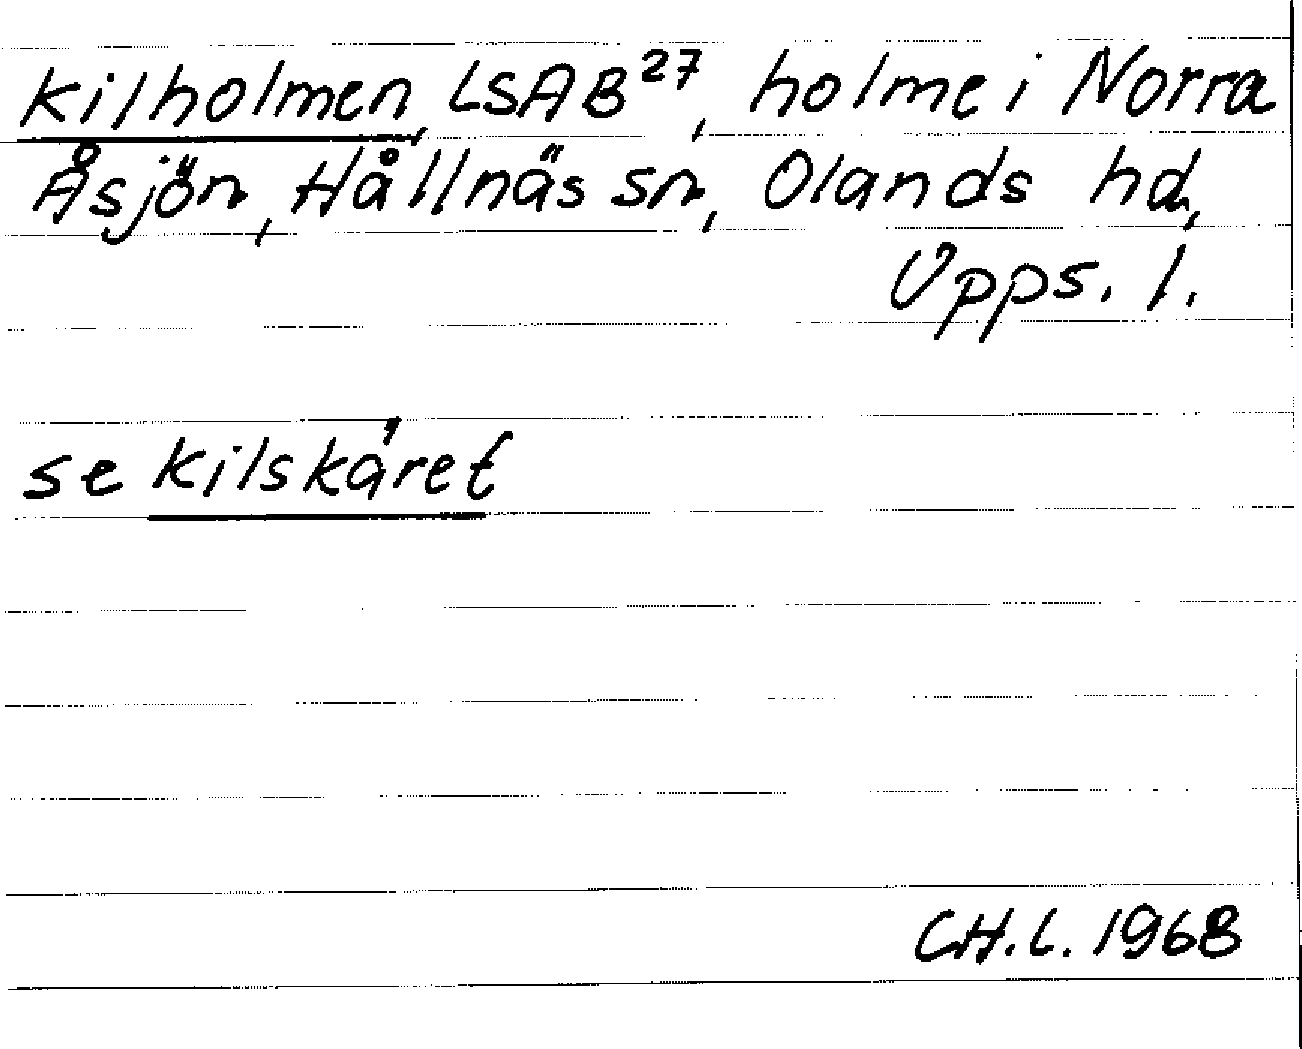 Kilholmen, LSAB²⁷, holme i Norra
Åsjön, Hållnäs sn, Olands hd,
Upps. l.
se Kilskäret
CH.L. 1968